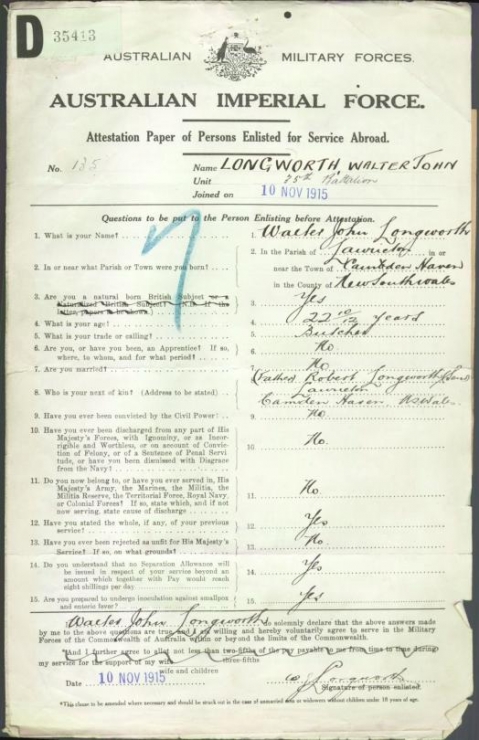 D 35413
AUSTRALIAN MILITARY FORCES.
AUSTRALIAN IMPERIAL FORCE.
Attestation Paper of Persons Enlisted for Service Abroad.
No. 135 Name LONGWORTH, WALTER JOHN
Unit 35th Battalion
Joined on 10 NOV 1915
Questions to be put to the Person Enlisting before Attestation.
1. What is your Name? Walter John Longworth
2. In or near what Parish or Town were you born? In the Parish of Laurieton in or
near the Town of Camden Haven
in the County of New South Wales
3. Are you a natural born British Subject or a
Naturalized British Subject? N.B. If the
latter, papers to be shown. 3. Yes
4. What is your age? 4. 22 10/12 years
5. What is your trade or calling? 5. Butcher
6. Are you, or have you been, an Apprentice? If so,
where, to whom, and for what period? 6. No
7. Are you married? 7. No
8. Who is your next of kin? (Address to be stated) (Father) Robert Longworth
Laurieton
Camden Haven
9. Have you ever been convicted by the Civil Power? 9. No
10. Have you ever been discharged from any part of His
Majesty's Forces, with Ignominy, or as Incor-
rigible and Worthless, or on account of Convic-
tion of Felony, or of a Sentence of Penal Servi-
tude, or have you been dismissed with Disgrace
from the Navy? 10. No
11. Do you now belong to, or have you ever served in, His
Majesty's Army, the Marines, the Militia, the
Militia Reserve, the Territorial Force, Royal Navy,
or Colonial Forces? If so, state which, and if not
now serving, state cause of discharge 11. No
12. Have you stated the whole, if any, of your previous
service? 12. Yes
13. Have you ever been rejected as unfit for His Majesty's
Service? If so, on what grounds? 13. No
14. Do you understand that no Separation Allowance will
be issued in respect of your service beyond an
amount which together with Pay would reach
eight shillings per day. 14. Yes
15. Are you prepared to undergo inoculation against smallpox
and enteric fever? 15. Yes
Walter John Longworth do solemnly declare that the above answers made
by me to the above questions are true, and I am willing and hereby voluntarily agree to serve in the Military
Forces of the Commonwealth of Australia within or beyond the limits of the Commonwealth.
*And I further agree to allot not less than two-fifths of the pay payable to me from time to time during
three-fifths
my service for the support of my wife
wife and children
Date 10 NOV 1915 W J Longworth
Signature of person enlisted.
*This clause to be amended where necessary and should be struck out in the case of unmarried men or widowers without children under 18 years of age.